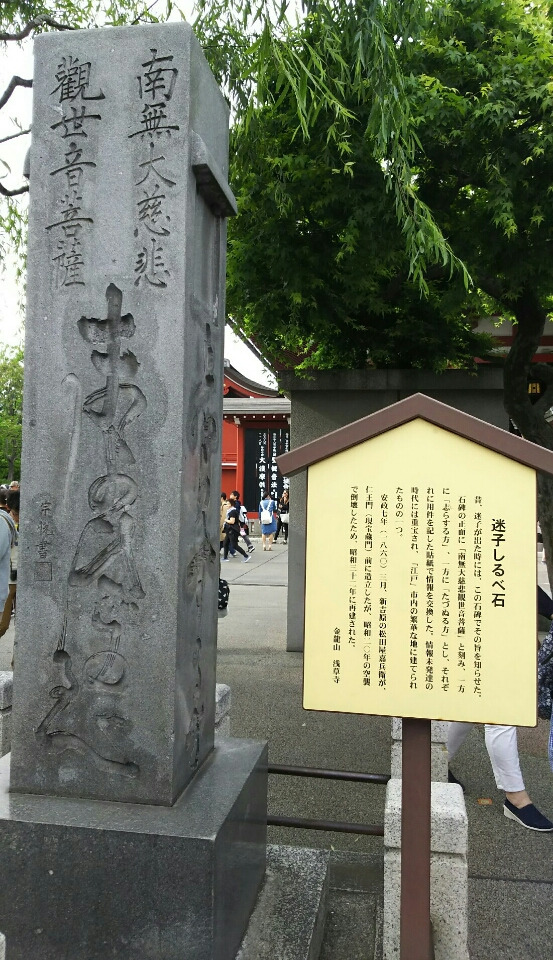 南無大慈悲
觀世音菩薩
まよひこの志るべ
迷子しるべ石
昔、迷子が出た時には、この石碑でその旨を知らせた。
石碑の正面に「南無大慈悲観世音菩薩」と刻み、一方
に「志らする方」、一方に「たづぬる方」とし、それぞ
れに用件を記した貼紙で情報を交換した。情報未発達の
時代には重宝され、「江戸」市内の繁華な地に建てられ
たものの一つ。
安政七年（一八六〇）三月、新吉原の松田屋嘉兵衛が、
仁王門（現宝蔵門）前に造立したが、昭和二〇年の空襲
で倒壊したため、昭和三十二年に再建された。
金龍山 浅草寺